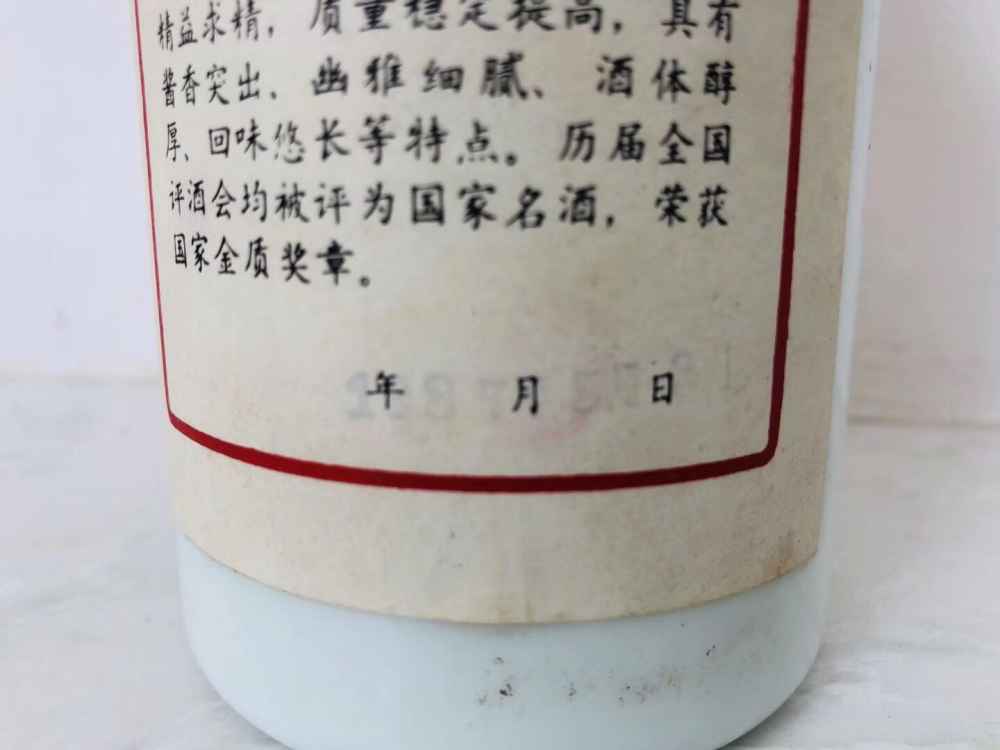 精益求精，质量稳定提高，具有
酱香突出、幽雅细腻、酒体醇
厚、回味悠长等特点。历届全国
评酒会均被评为国家名酒，荣获
国家金质奖章。
年 月 日